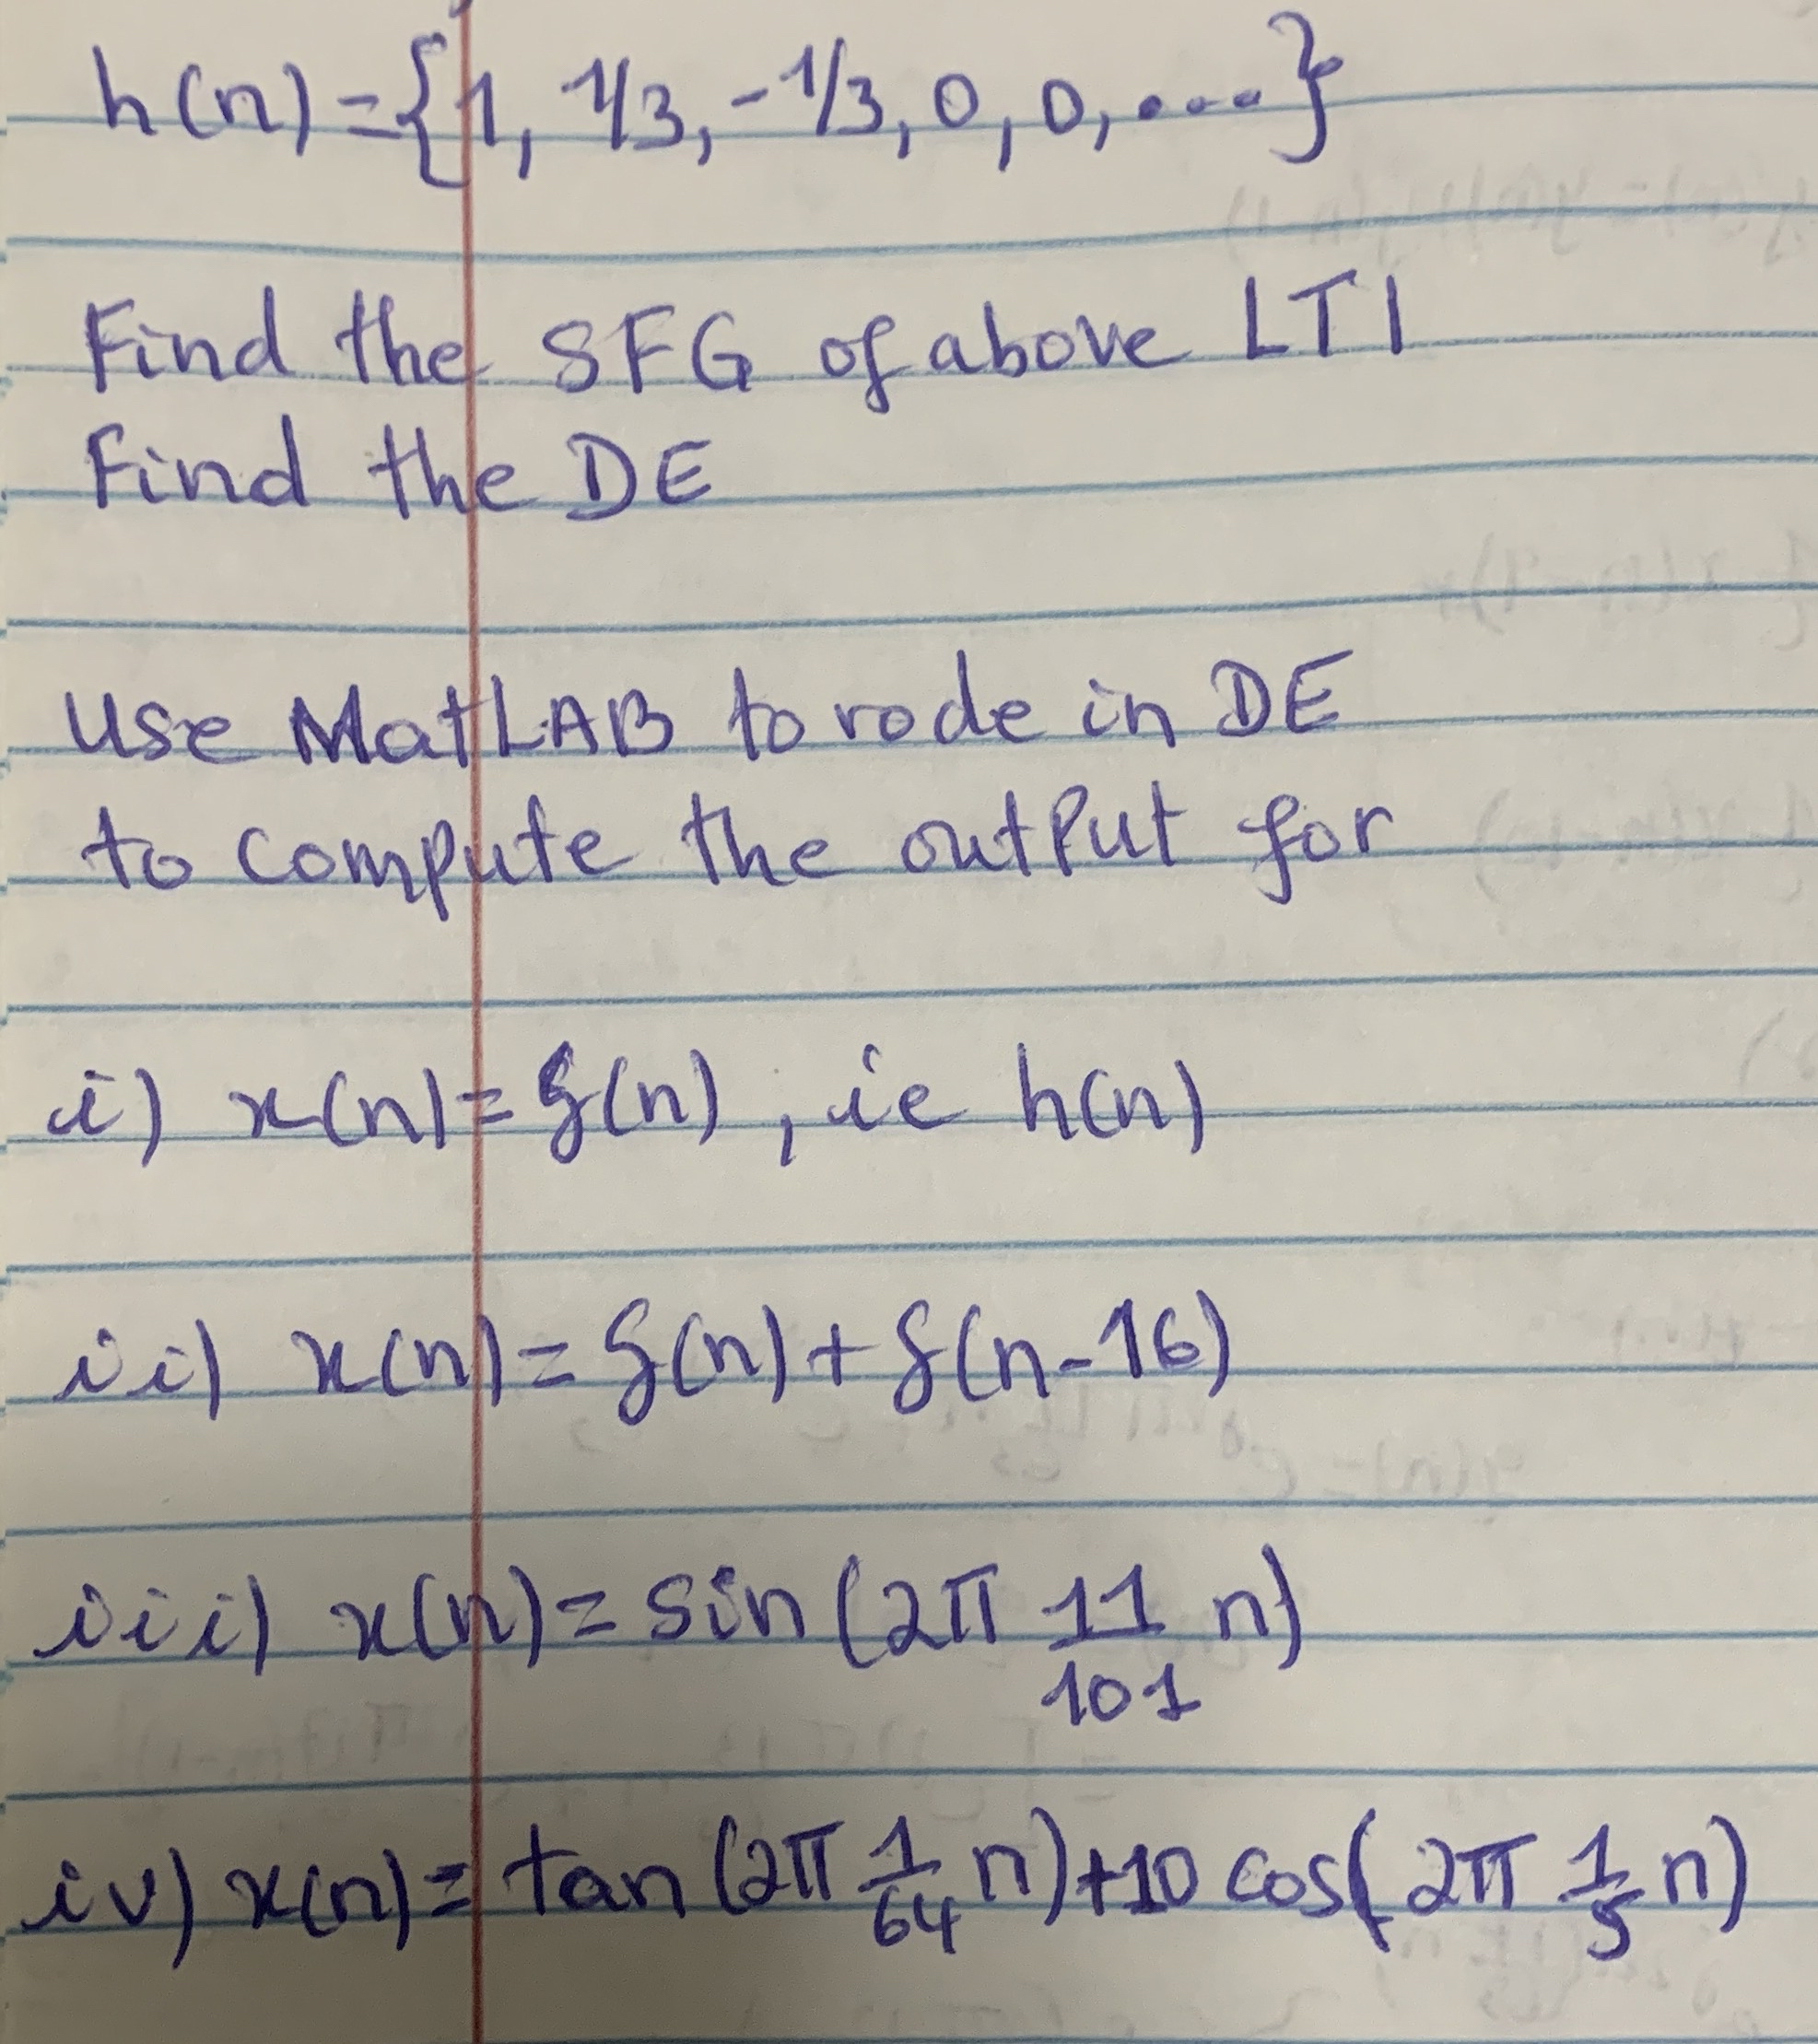 h(n)={1, 1/3, -1/3, 0, 0, ....}
Find the SFG of above LTI
Find the DE
Use MatLAB to rode in DE
to compute the output for
i) x(n)=δ(n), ie h(n)
ii) x(n)=δ(n)+δ(n-16)
iii) x(n)=sin(2π 11/101 n)
iv) x(n)=tan(2π 1/64 n)+10 cos(2π 1/5 n)